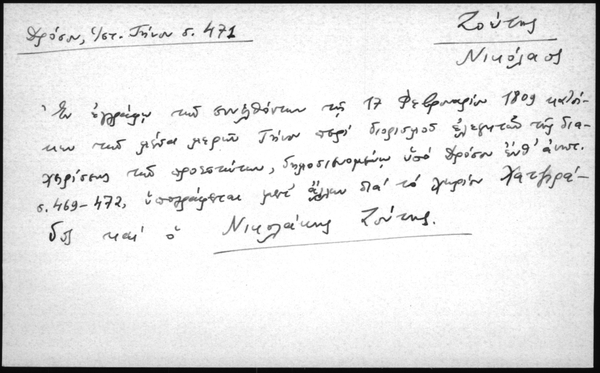 Δρόσου, Ἱστ. Τήνου σ. 471
Ζούτης
Νικόλαος
Ἐν ἐγγράφῳ τῶν συνελθόντων τῇ 17 Φεβρουαρίου 1809 κατοί-
κων τῶν μέσα μερῶν Τήνου περὶ διορισμοῦ ἐλεγκτῶν τῆς δια-
χειρίσεως τῶν προεστώτων, δημοσιευομένῳ ὑπὸ Δρόσου ἔνθ' ἀνωτ.
σ. 469-472, ὑπογράφεται μετ' ἄλλων διὰ τὸ χωρίον Χατζιρά-
δος καὶ ὁ Νικολάκης Ζούτης.